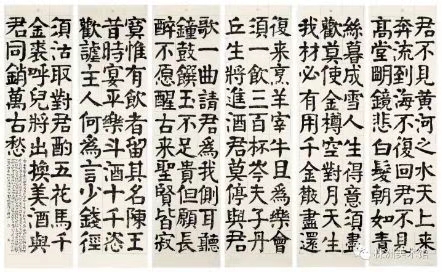 君不見黃河之水天上来
奔流到海不復回君不見
高堂朙鏡悲白髮朝如青
絲暮成雪人生得意須盡
歡莫使金樽空對月天生
我材必有用千金散盡還
復来烹羊宰牛且爲樂會
須一飲三百杯岑夫子丹
丘生將進酒君莫停與君
歌一曲請君爲我側耳聽
鐘鼓饌玉不足貴但願長
醉不愿醒古来聖賢皆寂
寞惟有飲者留其名陳王
昔時宴平樂斗酒十千恣
歡謔主人何為言少錢徑
須沽取對君酌五花馬千
金裘呼兒將出換美酒與
君同銷萬古愁